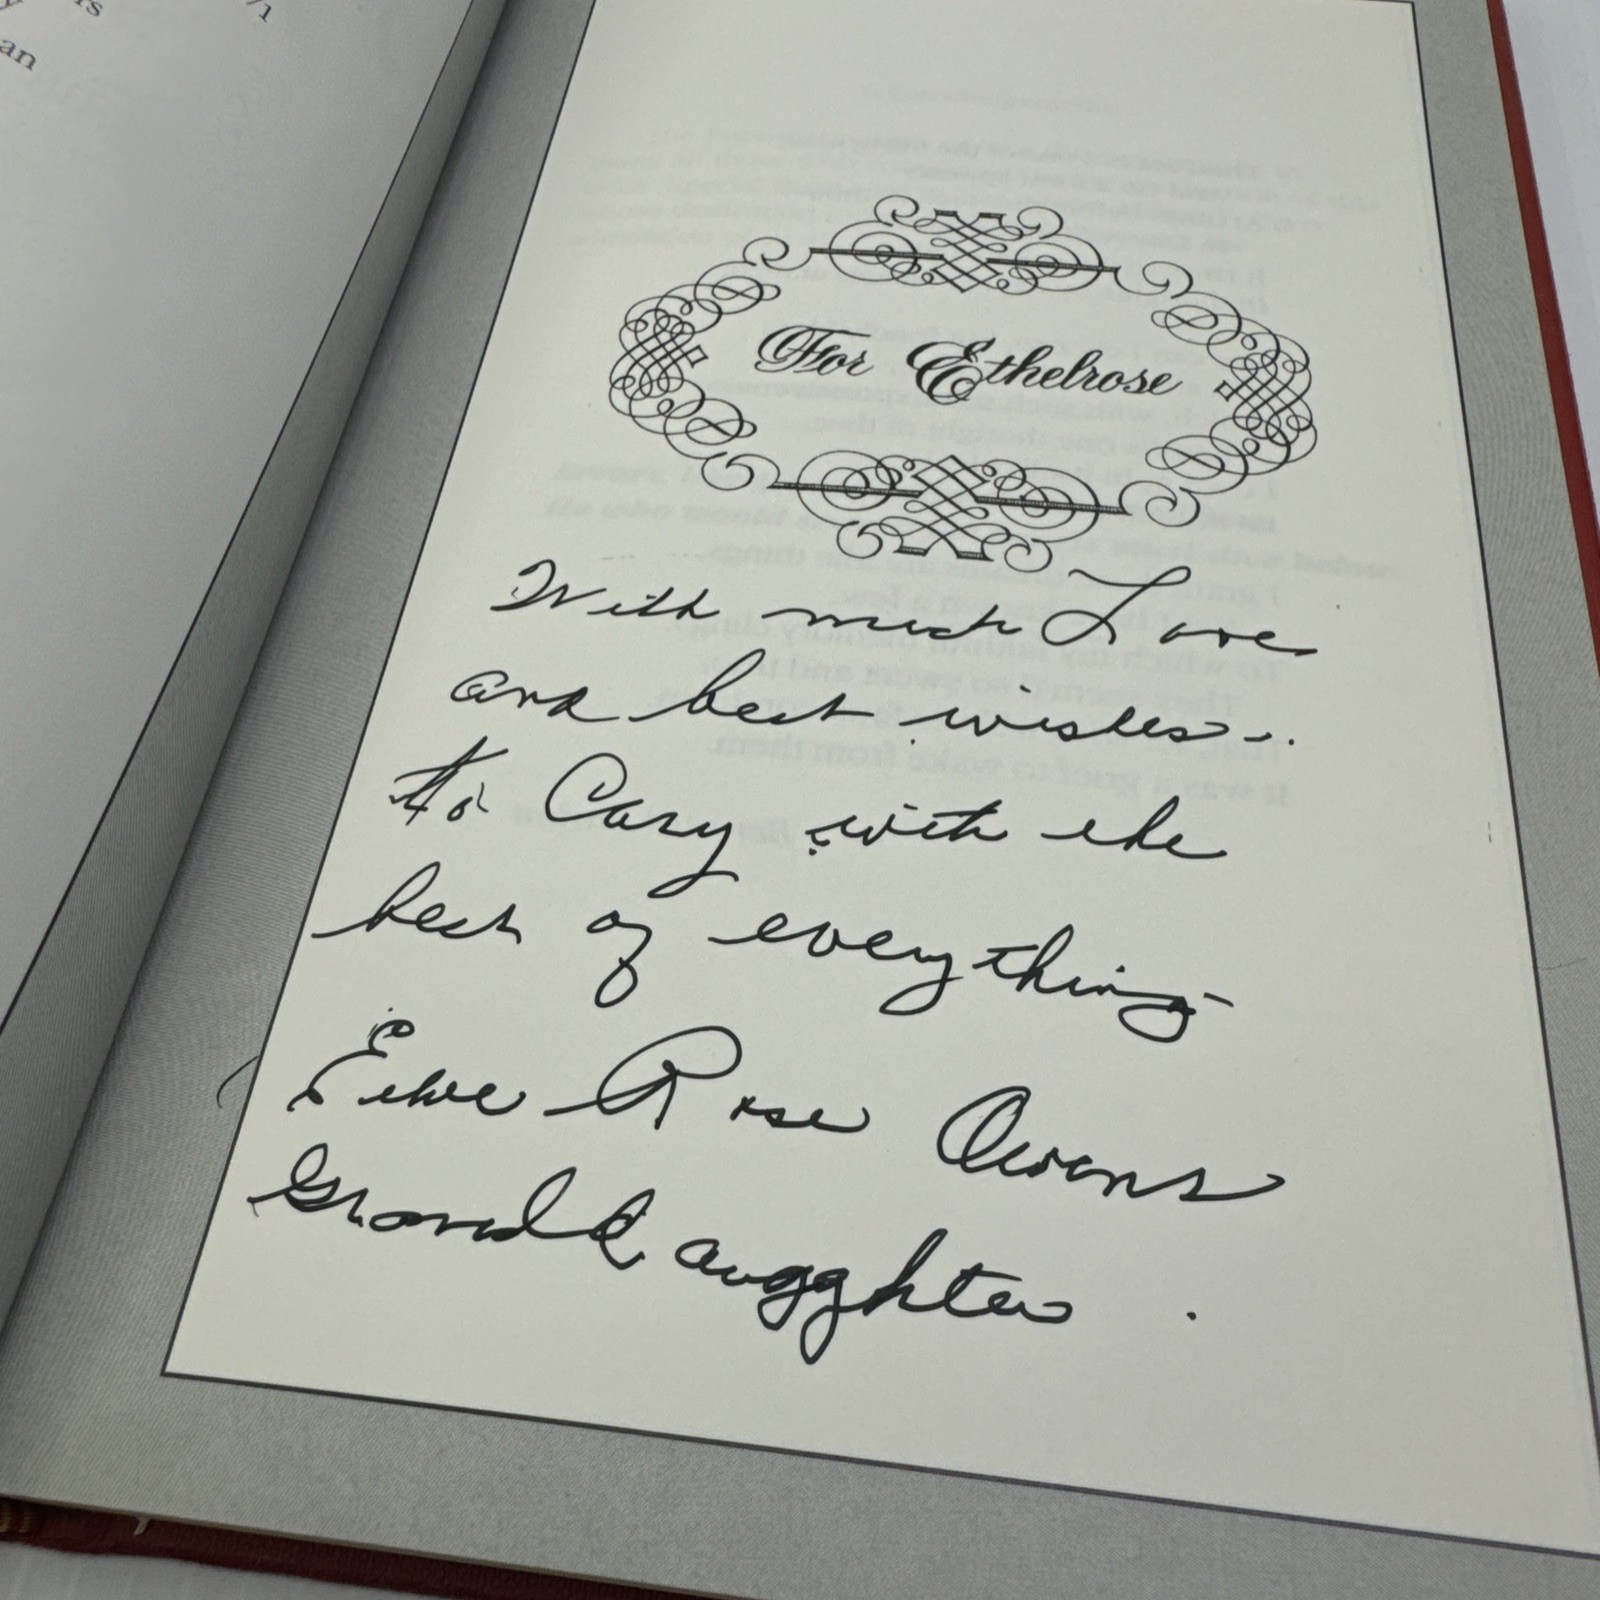 is
an
For Ethelrose
With much Love
and best wishes-.
to Cary with the
best of everything-
Rose Owens
Grandd augghter .